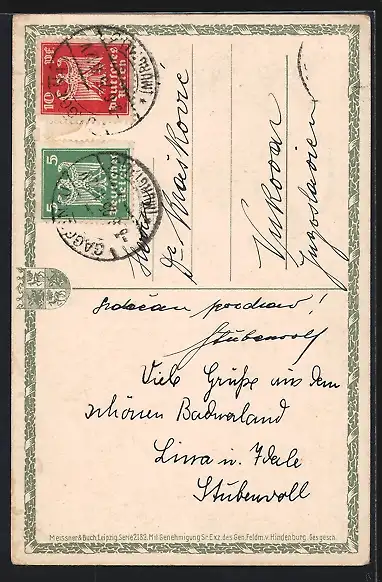 10 Pf.
Deutsches
Reich
5
Deutsches
Reich
GAGGENAU
Dr Maišković
Vukovar
Jugoslavien
Srdačan pozdrav!
Stubenvoll
Viele Grüße aus dem
schönen Badnerland
Lissa u. Idale
Stubenvoll
Meissner & Buch, Leipzig. Serie 2182. Mit Genehmigung Sr. Exz. des Gen. Feldm. v. Hindenburg. Ges. gesch.